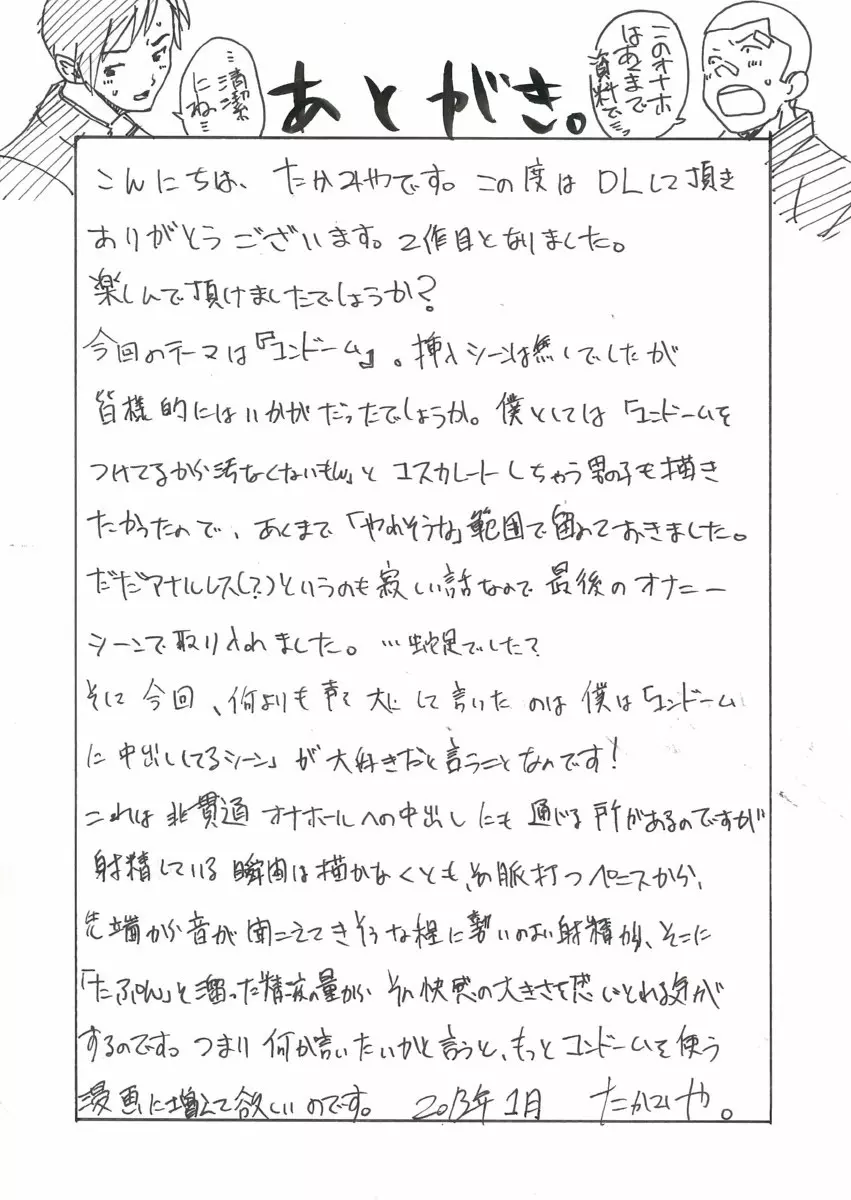 このオナホ
はあくまで
資料で…
…清潔
にね…
あとがき。
こんにちは、たかみやです。この度はDLして頂き
ありがとうございます。2作目となりました。
楽しんで頂けましたでしょうか?
今回のテーマは『コンドーム』。挿入シーンは無しでしたが
皆様的にはいかがだったでしょうか。僕としては「コンドームを
つけてるから汚なくないもん」と エスカレートしちゃう男の子も描き
たかったので、あくまで「やれそうな」範囲で留めておきました。
ただアナルレス(?)というのも寂しい話なので最後のオナニー
シーンで取り入れました。…蛇足でした?
そして今回、何よりも声を大にして言いたいのは僕は「コンドーム
に中出ししてるシーン」が大好きだと言うことなのです!
これは非貫通オナホールへの中出しにも通じる所があるのですが
射精している瞬間は描かなくとも、その脈打つペニスから、
先端から音が聞こえてきそうな程に勢いのよい射精から、そこに
「たぷん」と溜った精液の量から その快感の大きさを感じとれる気が
するのです。つまり何が言いたいかと言うと、もっとコンドームを使う
漫画に増えて欲しいのです。 2013年1月 たかみや。